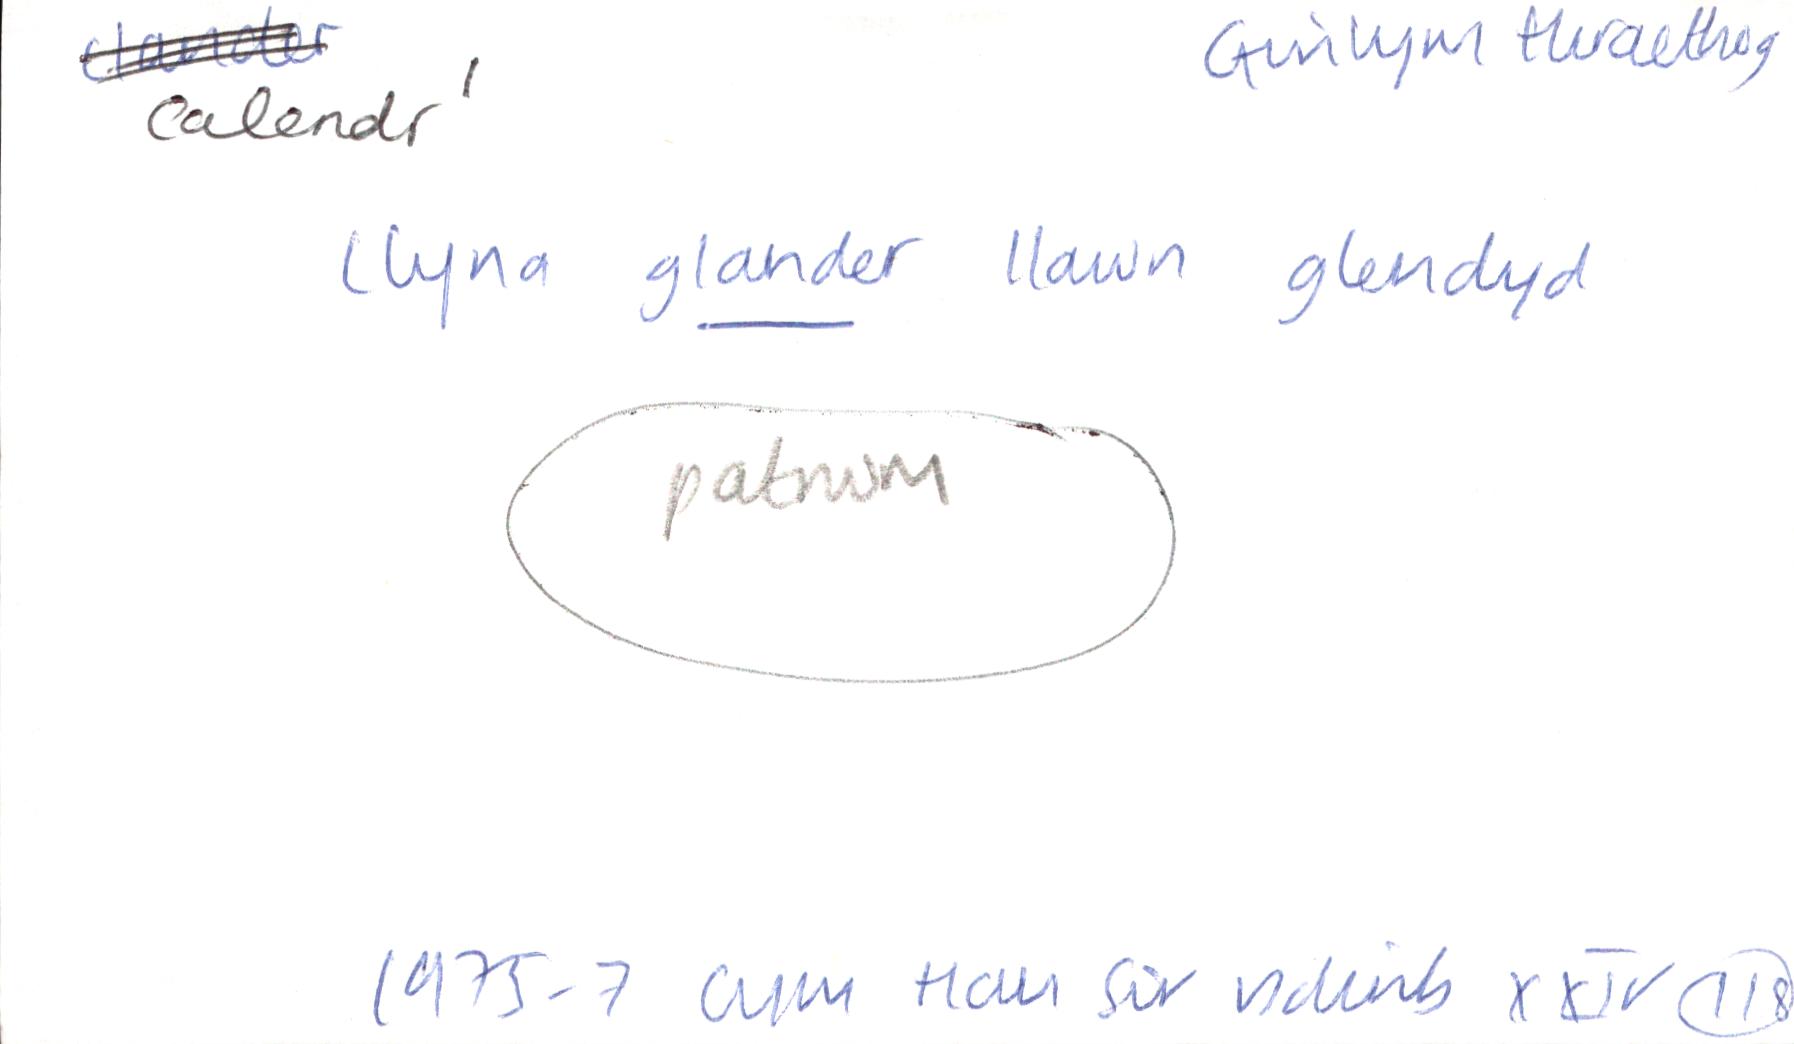 clander Gwilym Hiraethog
calendr'
Llyna glander llawn glendyd
patrwm
1975-7 Cym Han Sir Ddinb XXIV 118